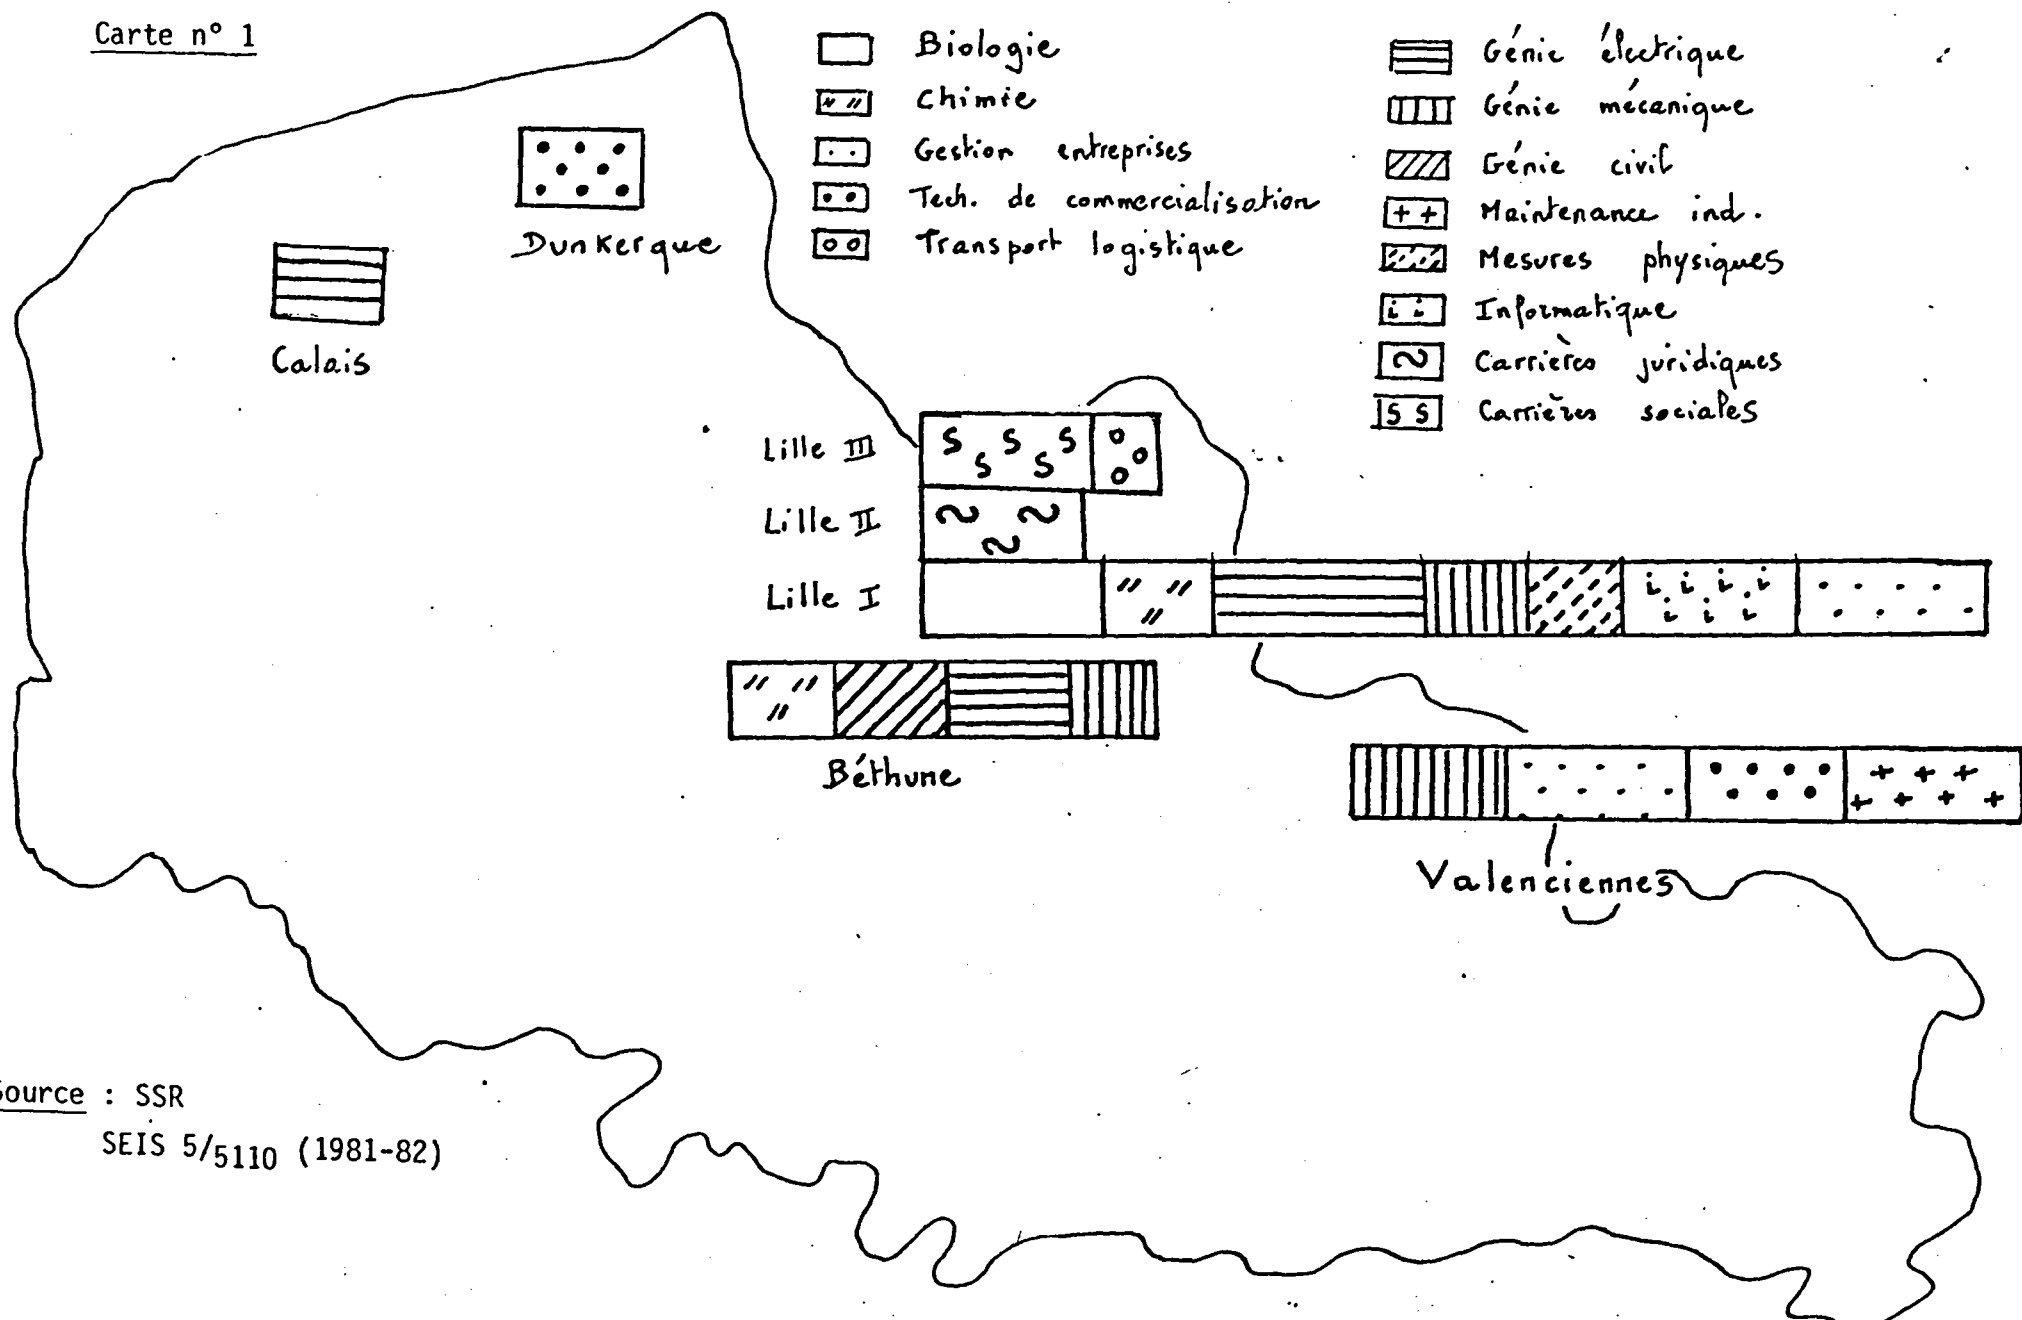 Carte n° 1
Biologie
Chimie
Gestion entreprises
Tech. de commercialisation
Transport logistique
Génie électrique
Génie mécanique
Génie civil
Maintenance ind.
Mesures physiques
Informatique
Carrières juridiques
Carrières sociales
Dunkerque
Calais
Lille III
Lille II
Lille I
Béthune
Valenciennes
Source : SSR
SEIS 5/5110 (1981-82)